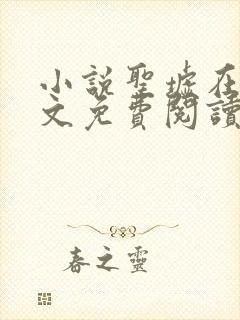 小説聖墟在
文免費閱讀
春之靈